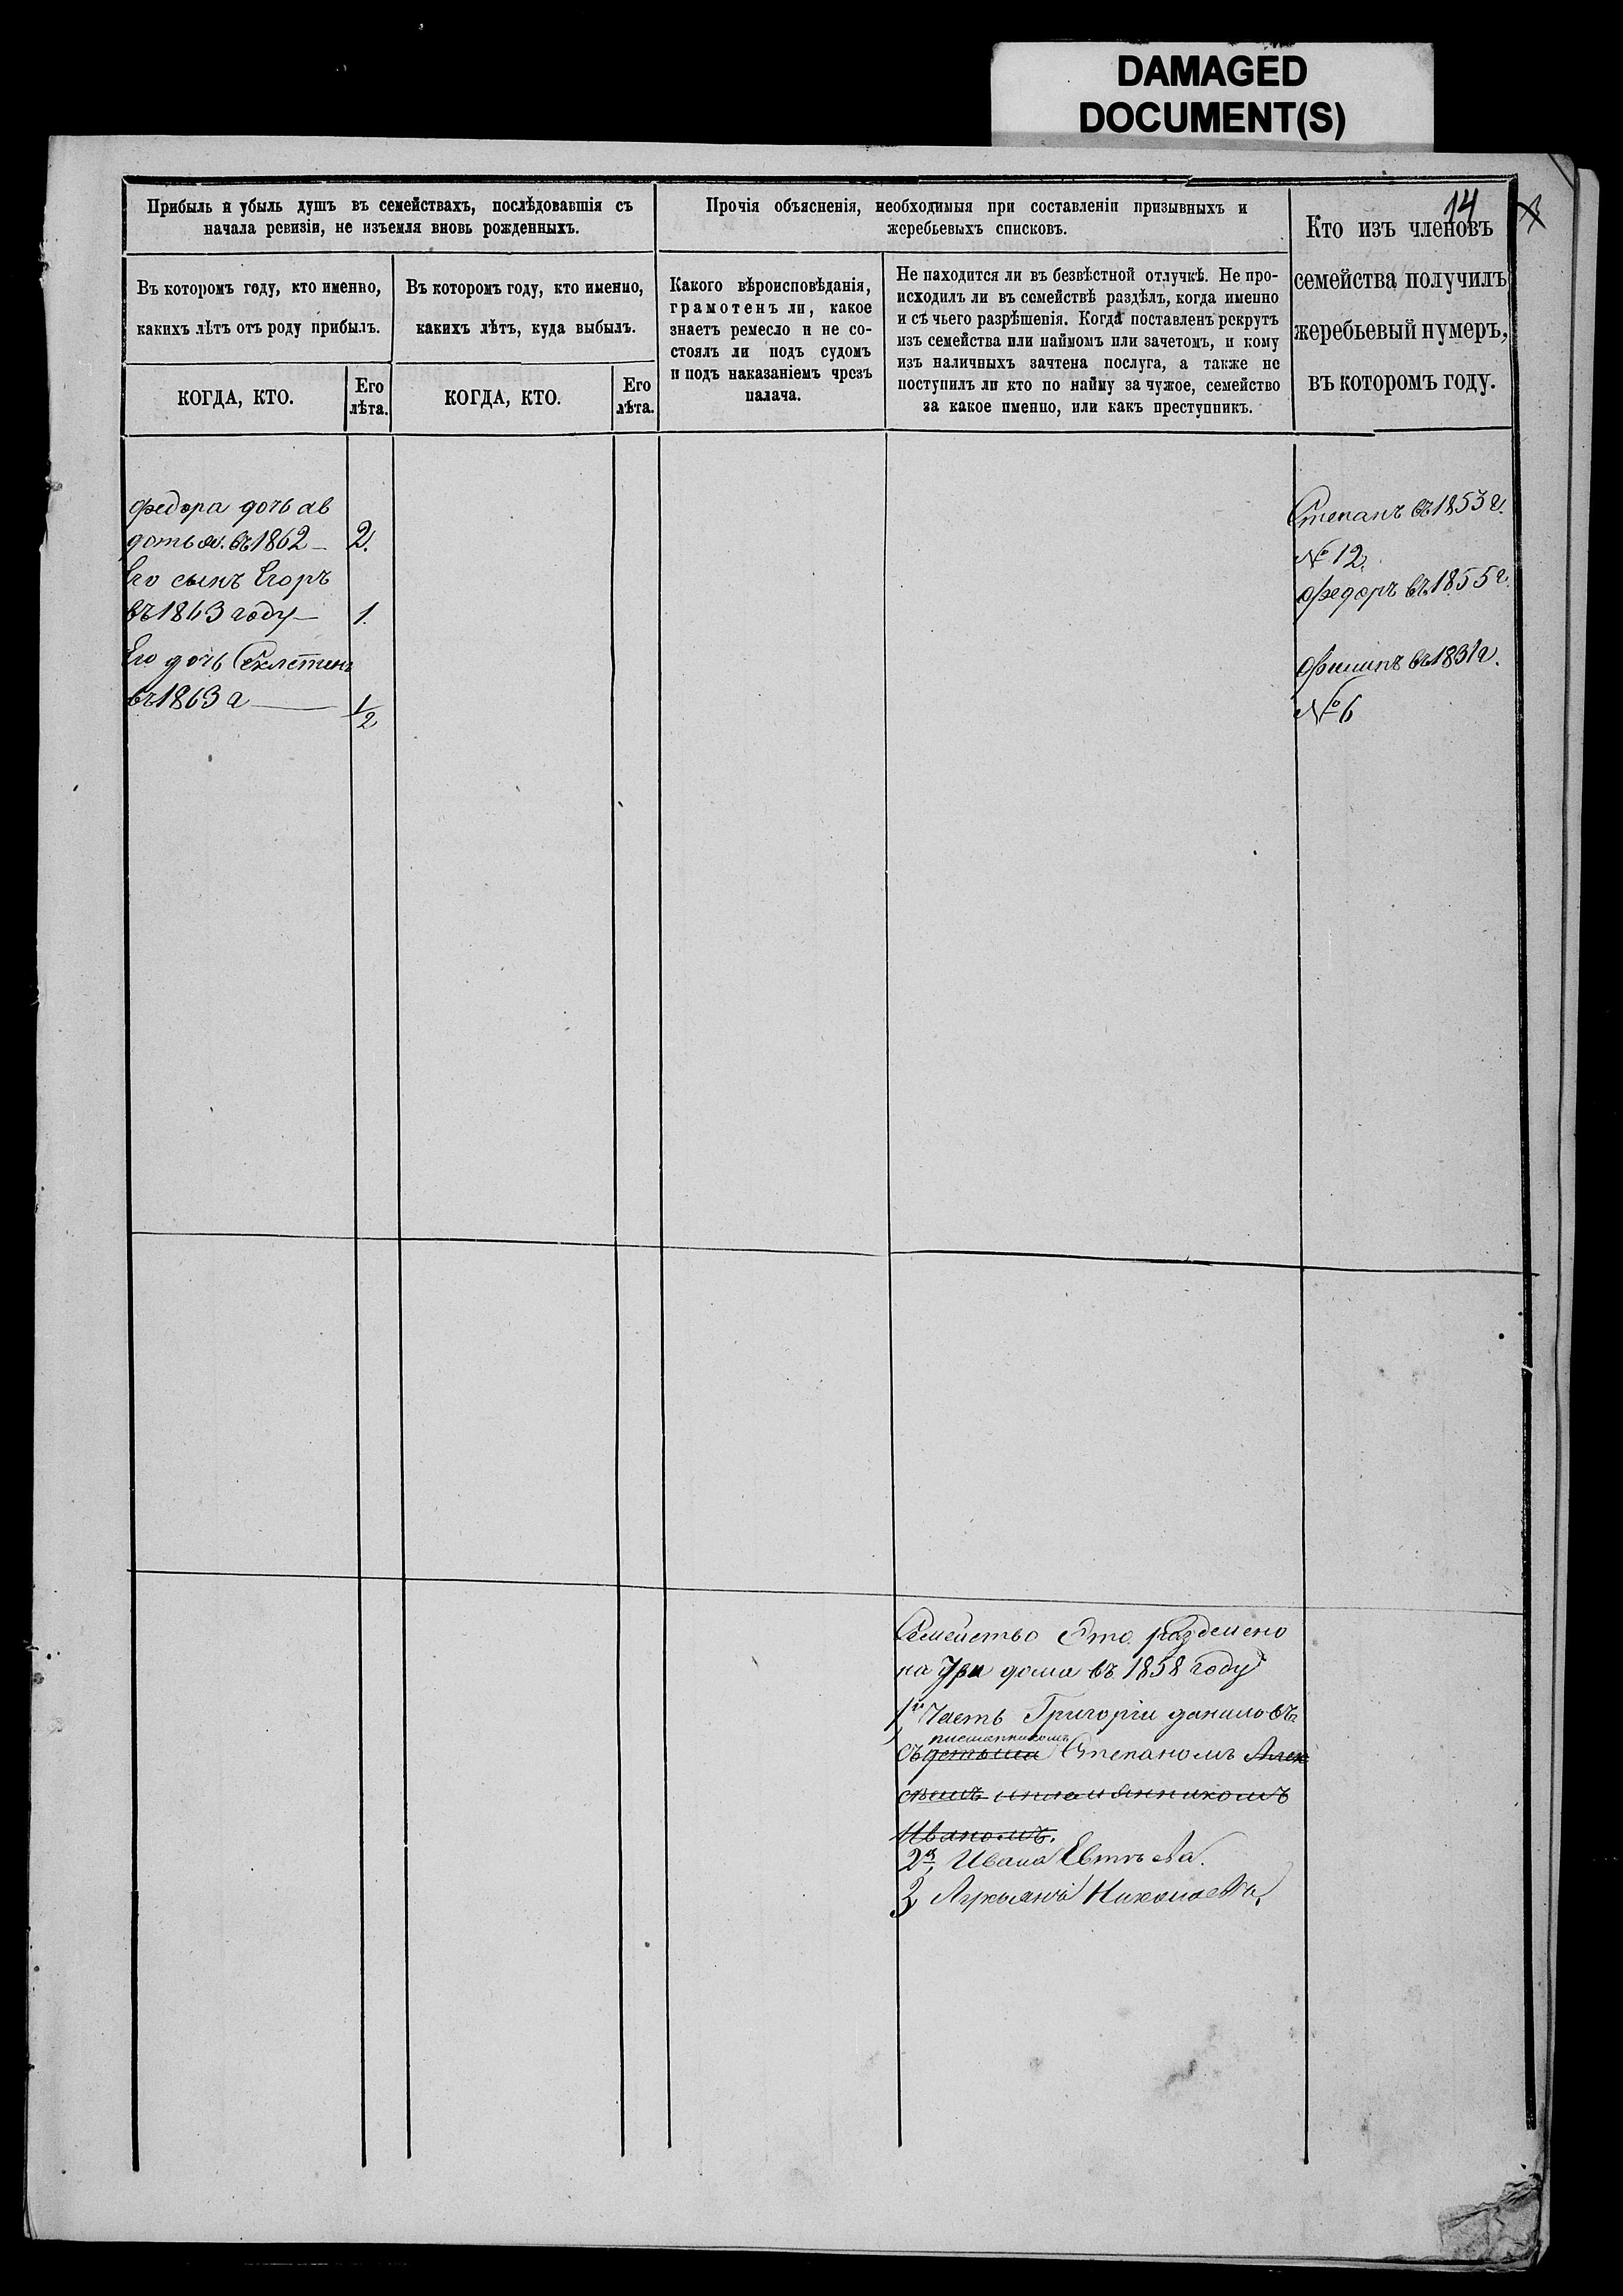 DAMAGED
DOCUMENT(S)
14
Прибыль и убыль душъ въ семействахъ, послѣдовавшія съ
начала ревизіи, не изъемля вновь рожденныхъ.
Въ которомъ году, кто именно,
какихъ лѣтъ отъ роду прибылъ.
КОГДА, КТО.
Его
лѣта.
Въ которомъ году, кто именно,
какихъ лѣтъ, куда выбылъ.
КОГДА, КТО.
Его
лѣта.
Прочія объясненія, необходимыя при составленіи призывныхъ и
жеребьевыхъ списковъ.
Какого вѣроисповѣданія,
грамотенъ ли, какое
знаетъ ремесло и не со-
стоялъ ли подъ судомъ
и подъ наказаніемъ чрезъ
палача.
Не находится ли въ безвѣстной отлучкѣ. Не про-
исходилъ ли въ семействѣ раздѣлъ, когда именно
и съ чьего разрѣшенія. Когда поставленъ рекрутъ
изъ семейства или наймомъ или зачетомъ, и кому
изъ наличныхъ зачтена послуга, а также не
поступилъ ли кто по найму за чужое, семейство
за какое именно, или какъ преступникъ.
Кто изъ членовъ
семейства получилъ
жеребьевый нумеръ,
въ которомъ году.
федора дочь ав
дотья. въ 1862 — 2.
Его сынъ Егоръ
въ 1863 году — 1.
Его дочь
въ 1863 г — 1/2
Степанъ въ 1853 г.
№ 12.
федоръ въ 1855 г.
филипъ въ 1831 г.
№ 6
Семейство Это разделено
на Три дома въ 1858 году
1я Часть Григорiи даниловъ
племянникомъ
съ детьми Степаномъ Алек
сѣемъ и племянникомъ
Иваномъ.
2я, Ивана
3, Николаева,